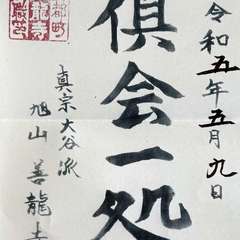 令和五年五月九日
倶会一処
真宗大谷派
旭山善龍寺